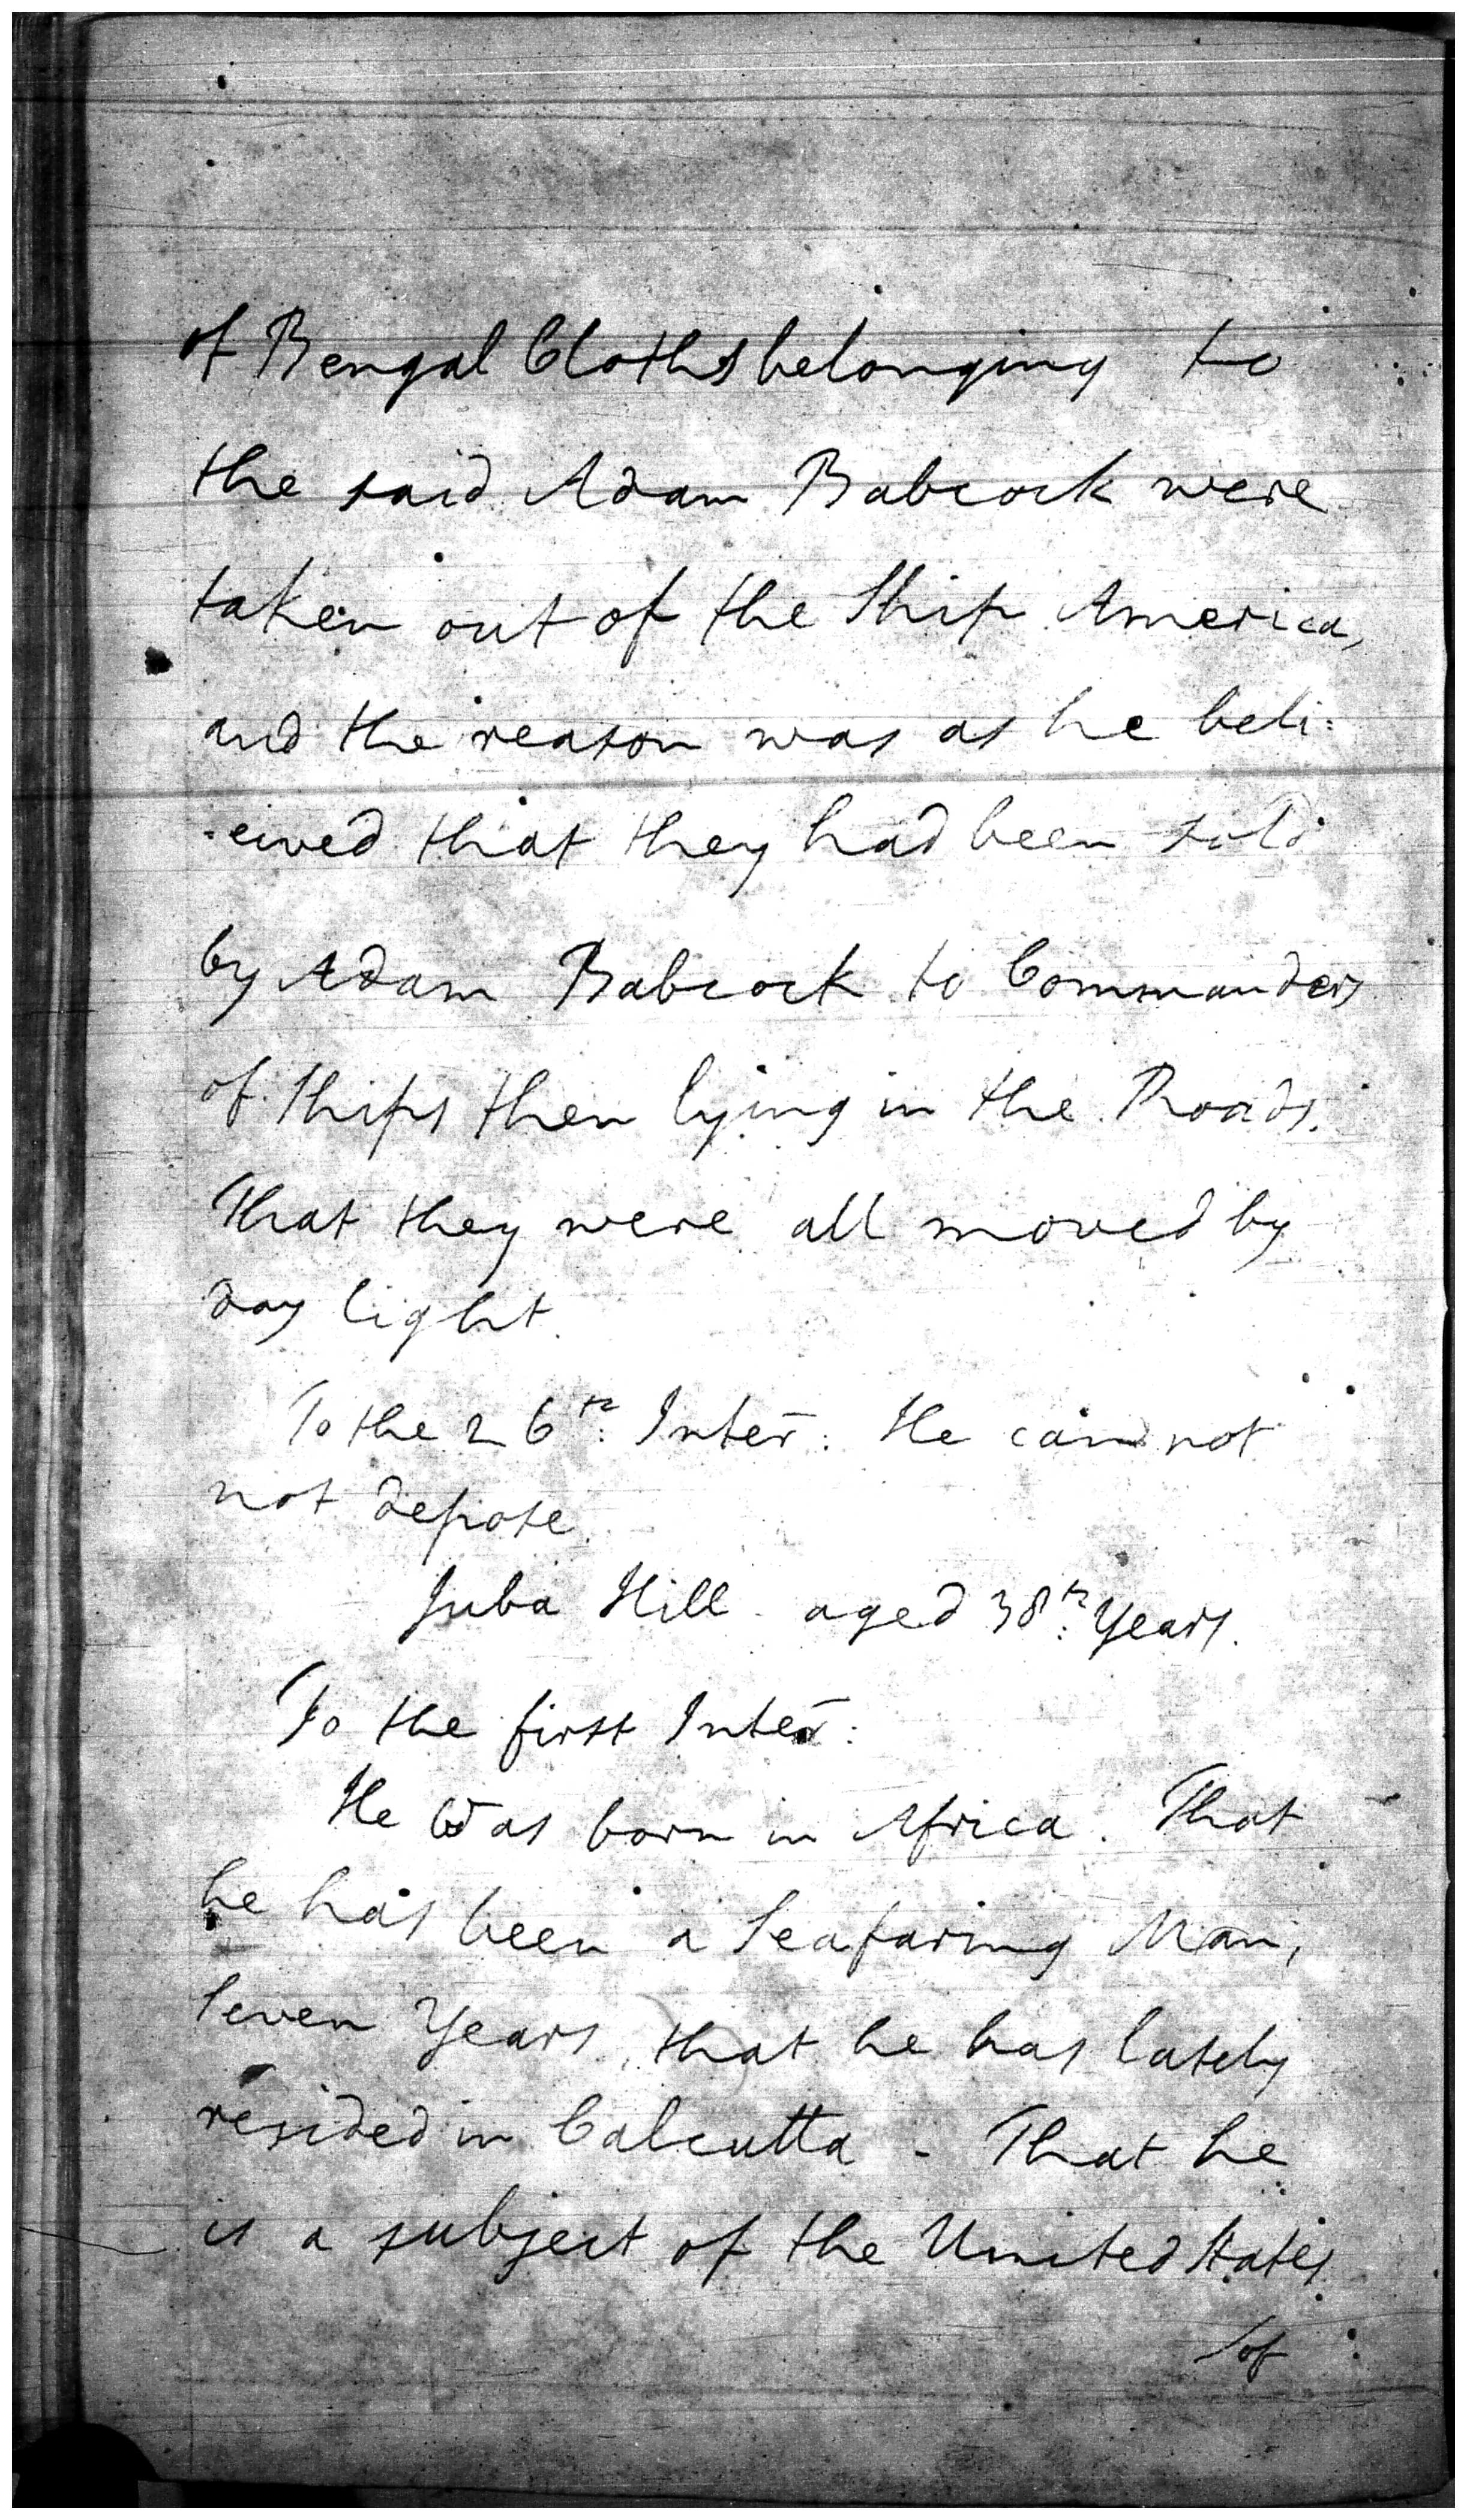 of Bengal Cloths belonging to
the said Adam Babcock were
taken out of the Ship America,
and the reason was as he beli:
=eived that they had been sold
by Adam Babcock to Commanders
of Ships then lying in the Roads.
That they were all moved by
day light.
To the 26th: Inter: He can not
not depose.
Juba Hill aged 38th: Years.
To the first Inter:
He Was born in Africa. That
he has been a Seafaring Man,
Seven Years, that he has lately
resided in Calcutta - That he
is a subject of the United States
/of